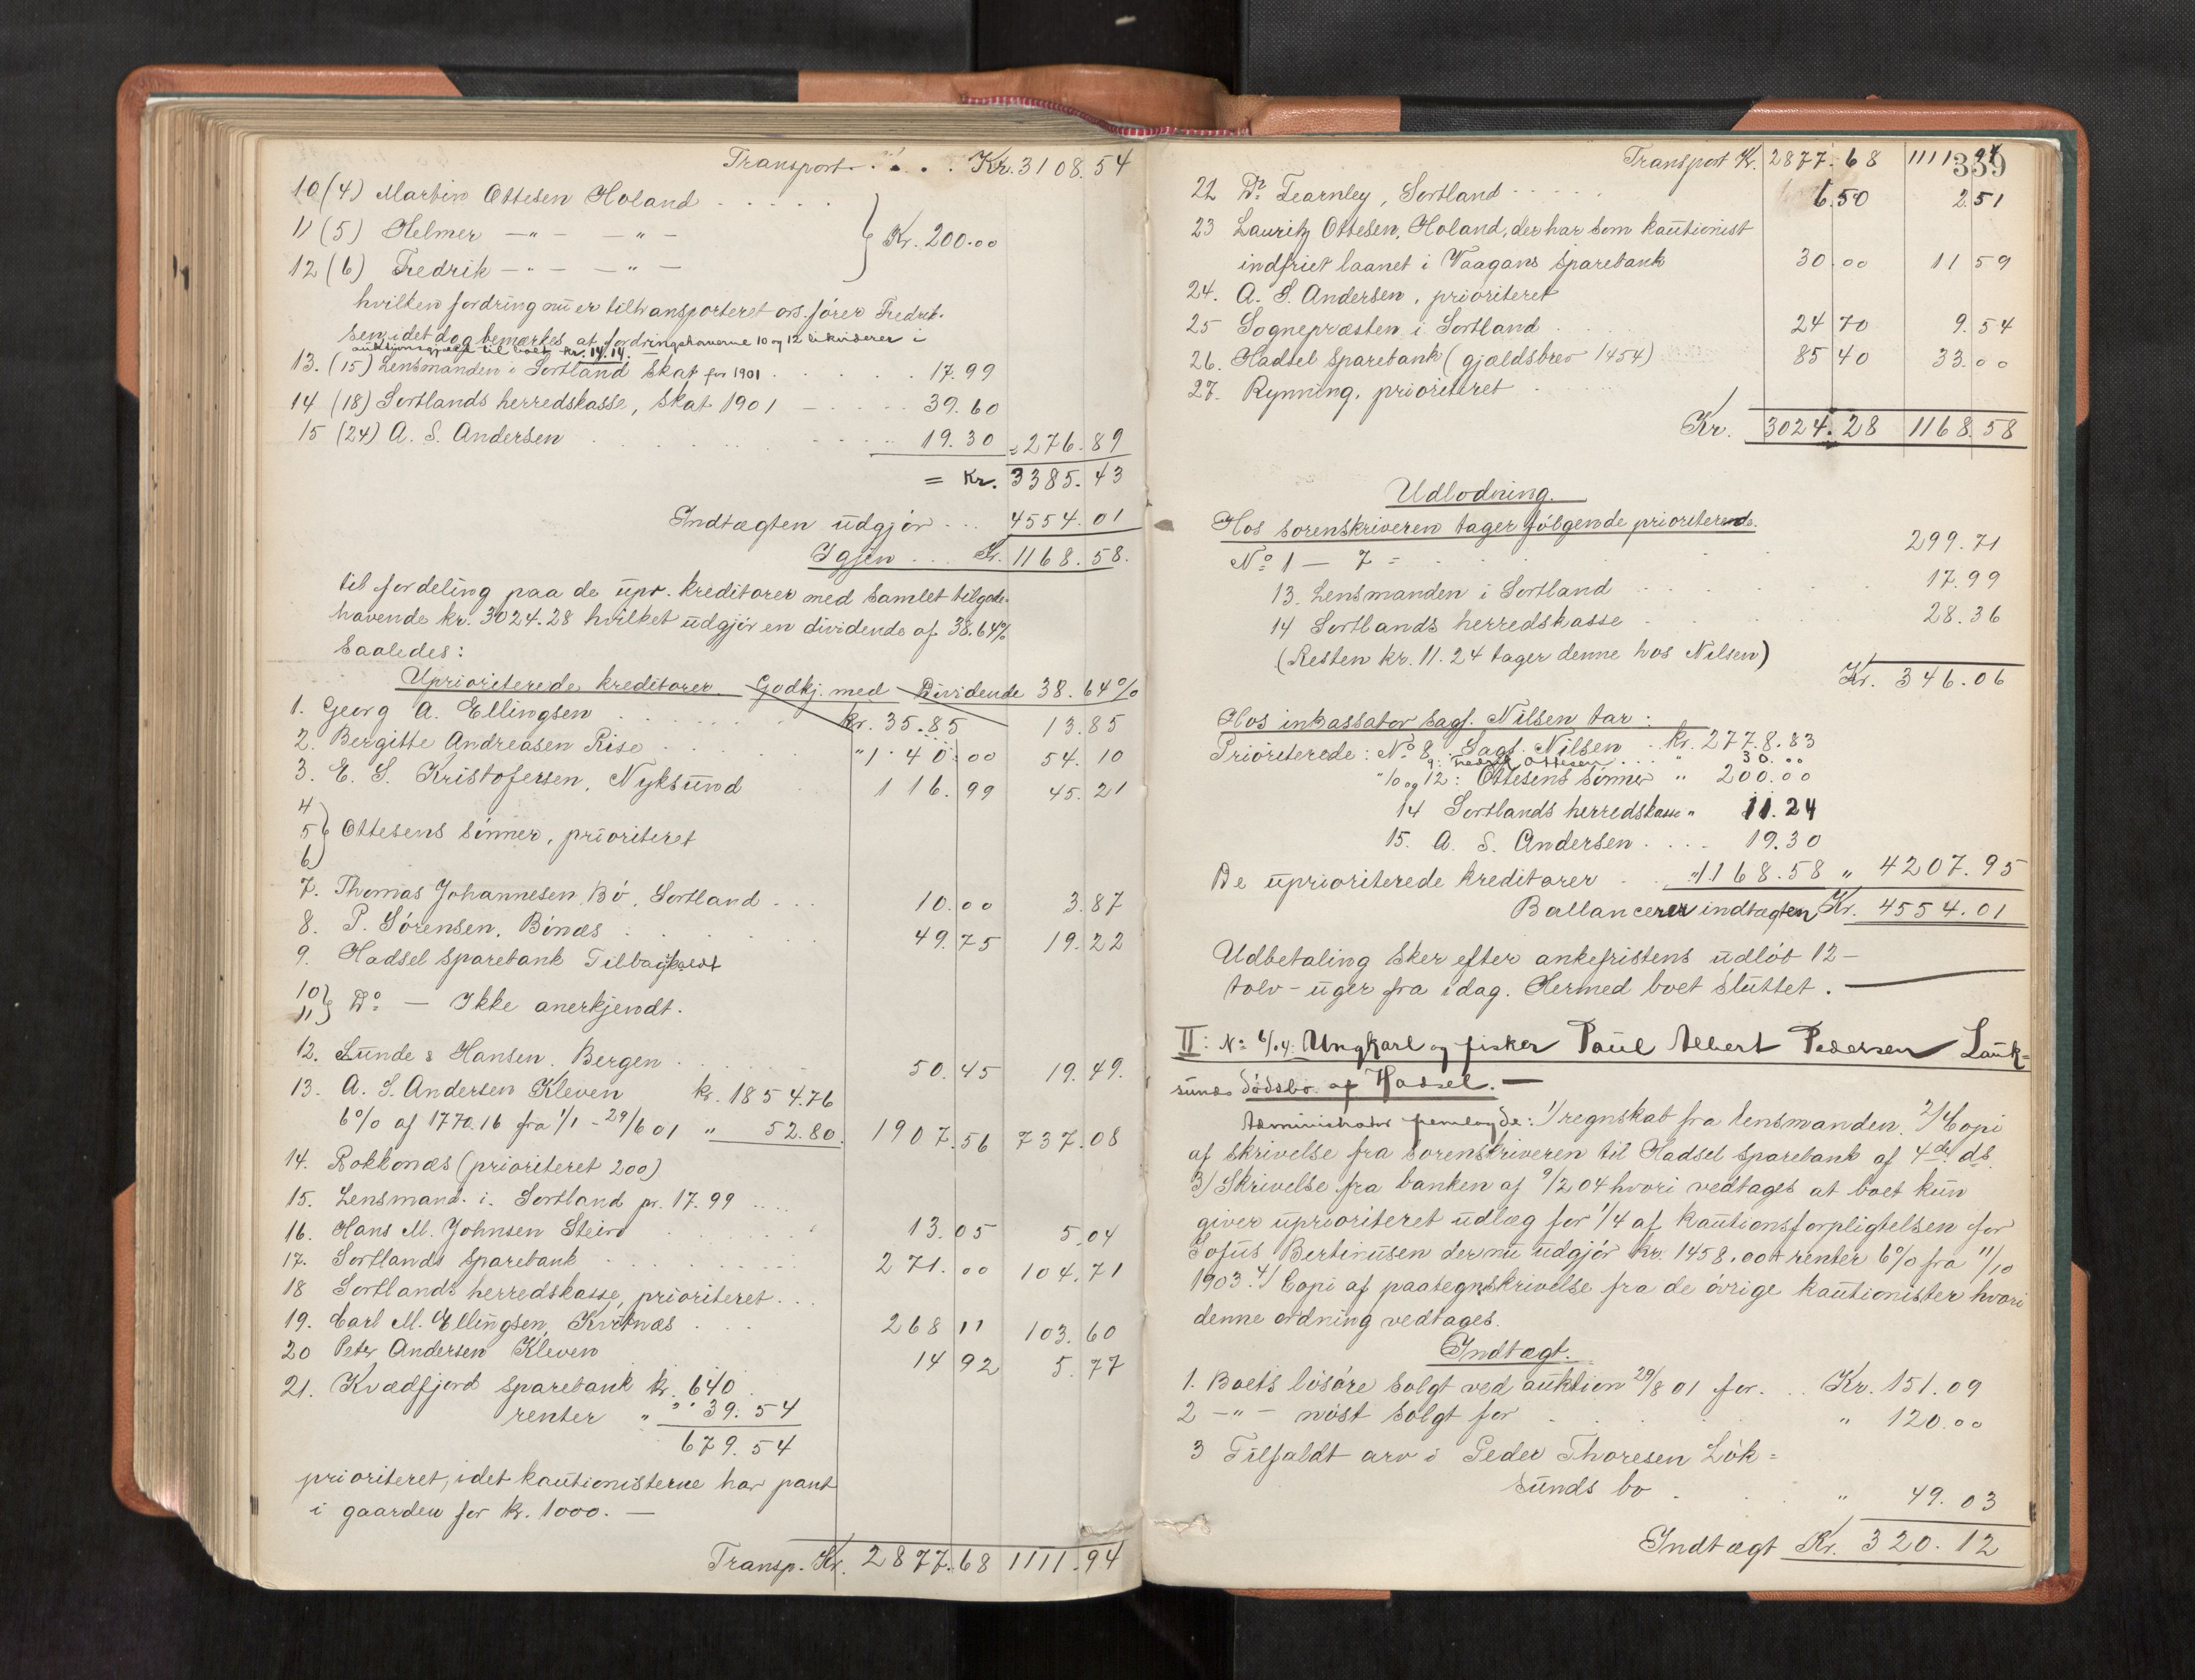 Transport . . . . Kr. 3108.54
10 (4) Martin Ottesen Holand . . . . .
11 (5) Helmer —"— —"— } Kr. 200.00
12 (6) Fredrik —"— —"—
hvilken fordring nu er tiltransporteret ovs. fører Fredrik-
sen, idet dog bemærkes, at fordringshaverne 10 og 12 likviderer i
auktionsgjæld til boet kr. 14.14. —
13. (15) Lensmanden i Sortland Skat for 1901 . . . . . 17.99
14 (18) Sortlands herredskasse, Skat 1901 — . . . . 39.60
15 (24) A. S. Andersen . . . . . . 19.30 = 276.89
= Kr. 3385.43
Indtægten udgjør . . . 4554.01
Igjen . . . Kr. 1168.58.
til fordeling paa de upr. kreditorer med samlet tilgode-
havende kr. 3024.28 hvilket udgjør en dividende af 38.64%
saaledes:
Uprioriterede kreditorer Godkj. med Dividende 38.64%
1. Georg A. Ellingsen . . . . . . kr. 35.85 13.85
2. Bergitte Andreasen Rise . . . . . " 140.00 54.10
3. E. S. Kristofersen, Nyksund 116.99 45.21
4
5 } Ottesens sønner, prioriteret
6
7. Thomas Johannesen, Bø, Sortland . . . 10.00 3.87
8. P. Sørensen, Bønæs . . . . . 49.75 19.22
9. Hadsel sparebank Tilbagekaldt
10
11 } Do — Ikke anerkjendt.
12. Lunde & Hansen, Bergen . . . . . . 50.45 19.49.
13. A. S. Andersen Kleven kr. 1854.76
6% af 1770.16 fra 1/1 - 29/6 01 " 52.80. 1907.56 737.08
14. Bokkonæs (prioriteret 200)
15. Lensmand. i. Sortland pr. 17.99 . . . .
16. Hans M. Johnsen Steiro . . . . . . 13.05 5.04
17. Sortlands sparebank . . . . . . . . 271.00 104.71
18 Sortlands herredskasse, prioriteret . . .
19. Carl M. Ellingsen, Kvitnæs . . . 268 11 103.60
20 Peter Andersen Kleven 14 92 5.77
21. Kvædfjord sparebank kr. 640
renter " " 39.54
679.54
prioriteret, idet kautionisterne har pant
i gaarden for kr. 1000. —
Transp. Kr. 2877.68 1111.94
339
Transport Kr. 2877.68 1111.94
22 Dr. Fearnley, Sortland . . . . . 6.50 2.51
23 Lauritz Ottesen, Holand, der har som kautionist
indfriet laanet i Vaagans sparebank 30.00 11 59
24. A. S. Andersen, prioriteret
25 Sognepræsten i Sortland . . . . . 24 70 9.54
26. Hadsel sparebank (gjældsbrev 1454) 85 40 33.00
27. Rynning, prioriteret . . . . .
Kr. 3024.28 1168.58
Udlodning.
Hos sorenskriveren tager følgende prioriterede.
No 1 — 7 = . . . . . 299.71
13. Lensmanden i Sortland . . . . . 17.99
14 Sortlands herredskasse . . . . 28.36
(Resten kr. 11.24 tager denne hos Nilsen)
Kr. 346.06
Hos inkassator sagf. Nilsen tar:
Prioriterede: No 8. Sagf. Nilsen . kr. 2778.83
9: Ottesen . . . " 30.00
" 10 og 12: Ottesens sønner " 200.00
14 Sortlands herredskasse " 11.24
15. A. S. Andersen . . . . 19.30
De uprioriterede kreditorer . . " 1168.58 " 4207.95
Ballancerer indtægten Kr. 4554.01
Udbetaling sker efter ankefristens udløb 12 —
tolv - uger fra idag. Hermed boet sluttet. —
II: No 6/04: Ungkarl og fisker Paul Albert Pedersen Lauk-
sunds dødsbo af Hadsel. —
Administrator fremlagde: 1/ regnskab fra lensmanden. 2/ Copi
af skrivelse fra sorenskriveren til Hadsel sparebank af 4de ds.
3/ Skrivelse fra banken af 9/2 04 hvori vedtages at boet kun
giver uprioriteret udlæg for 1/4 af kautionsforpligtelsen for
Sofus Bertinusen der nu udgjør kr. 1458.00 + renter 6% fra 11/10
1903. 4/ Copi af paategn. skrivelse fra de øvrige kautionister hvori
denne ordning vedtages.
Indtægt.
1. Boets løsøre solgt ved auktion 29/8 01 for. . . Kr. 151.09
2 —"— nøst solgt for . . . . . " 120.00
3 Tilfaldt arv i Peder Thoresen Løk-
sunds bo . . . . " 49.03
Indtægt Kr. 320.12